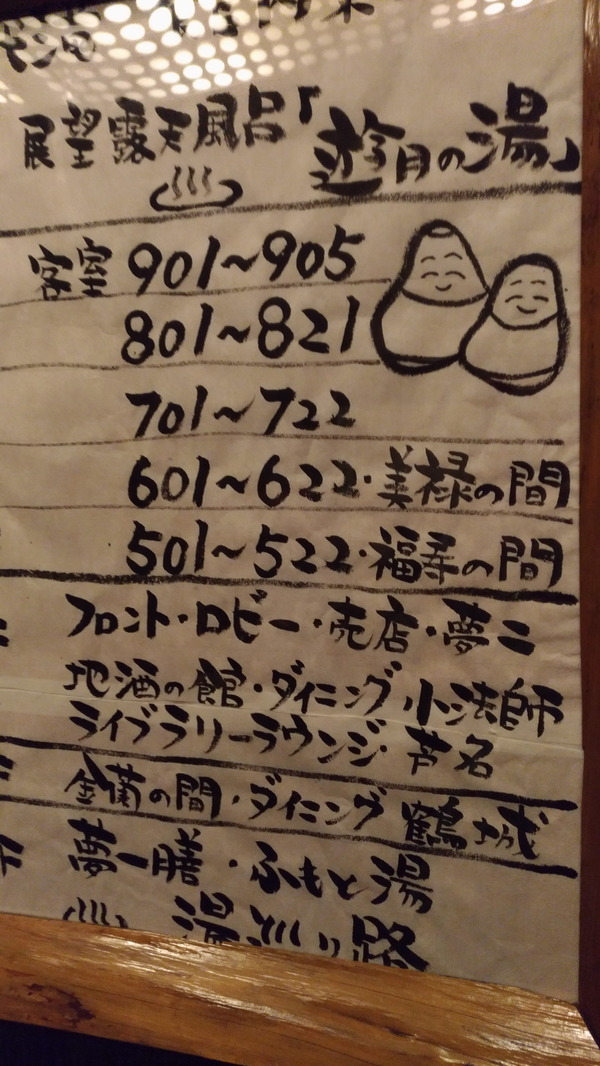 展望露天風呂「遊月の湯」
客室 901~905
801~821
701~722
601~622・美禄の間
501~522・福寿の間
フロント・ロビー・売店・夢二
地酒の館・ダイニング 小法師
ライブラリーラウンジ・芦名
金蘭の間・ダイニング 鶴城
夢一膳・ふもと湯
湯巡り路